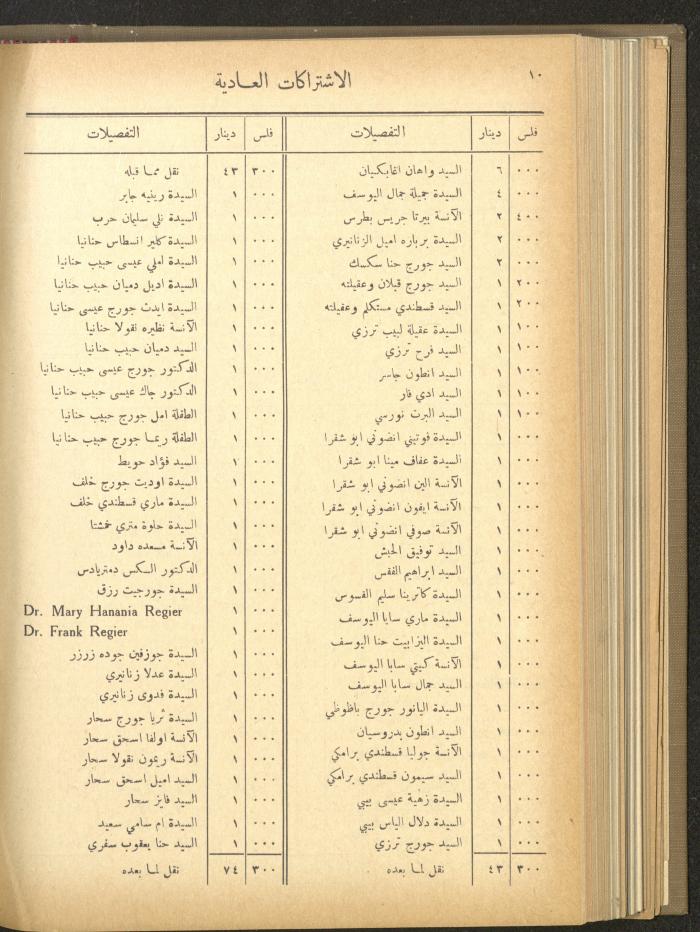 ١٠
الاشتراكات العـادية
فلس دينار التفصيلات
٠٠٠ ٦ السيد واهان اتمابكيان
٠٠٠ ٤ السيدة جميلة جمال اليوسف
٤٠٠ ٢ الآنسة بيرتا جريس بطرس
٠٠٠ ٢ السيدة برباره اميل الزنانيري
٠٠٠ ٢ السيد جورج حنا سكسك
٢٠٠ ١ السيد جورج قبلان وعقيلته
٢٠٠ ١ السيد قسطندي مستكلم وعقيلته
١٠٠ ١ السيدة عقيلة لبيب ترزي
١٠٠ ١ السيد فرح ترزي
١٠٠ ١ السيد انطون جاسر
١٠٠ ١ السيد ادي فار
١٠٠ ١ السيد البرت نورسي
٠٠٠ ١ السيدة فوتيني انضوني ابو شقرا
٠٠٠ ١ السيدة عفاف مينا ابو شقرا
٠٠٠ ١ الآنسة الين انضوني ابو شقرا
٠٠٠ ١ الآنسة ايفون انضوني ابو شقرا
٠٠٠ ١ الآنسة صوفي انضوني ابو شقرا
٠٠٠ ١ السيد توفيق الحبش
٠٠٠ ١ السيد ابراهيم القفس
٠٠٠ ١ السيدة كاترينا سليم القسوس
٠٠٠ ١ السيدة ماري سابا اليوسف
٠٠٠ ١ السيدة اليزابيت حنا اليوسف
٠٠٠ ١ الآنسة كيتي سابا اليوسف
٠٠٠ ١ السيد جمال سابا اليوسف
٠٠٠ ١ السيدة اليانور جورج باظوظي
٠٠٠ ١ السيد انطون بدروسيان
٠٠٠ ١ الآنسة جوليا قسطندي برامكي
٠٠٠ ١ السيد سيمون قسطندي برامكي
٠٠٠ ١ السيدة زهية عيسى بيبي
٠٠٠ ١ السيدة دلال الياس بيبي
٠٠٠ ١ السيد جورج ترزي
٣٠٠ ٤٣ نقل لما بعده
فلس دينار التفصيلات
٣٠٠ ٤٣ نقل مما قبله
٠٠٠ ١ السيدة رينيه جابر
٠٠٠ ١ السيدة نلي سليمان حرب
٠٠٠ ١ السيدة كلير انسطاس حنانيا
٠٠٠ ١ السيدة املي عيسى حبيب حنانيا
٠٠٠ ١ السيدة اديل دميان حبيب حنانيا
٠٠٠ ١ السيدة ايدت جورج عيسى حنانيا
٠٠٠ ١ الآنسة نظيره نقولا حنانيا
٠٠٠ ١ السيد دميان حبيب حنانيا
٠٠٠ ١ الدكتور جورج عيسى حبيب حنانيا
٠٠٠ ١ الدكتور جاك عيسى حبيب حنانيا
٠٠٠ ١ الطفلة امل جورج حبيب حنانيا
٠٠٠ ١ الطفلة ريما جورج حبيب حنانيا
٠٠٠ ١ السيد فؤاد حويط
٠٠٠ ١ السيدة اوديت جورج خلف
٠٠٠ ١ السيدة ماري قسطندي خلف
٠٠٠ ١ السيدة حلوة متري خمشتا
٠٠٠ ١ الآنسة مسعده داود
٠٠٠ ١ الدكتور الكس دمتريادس
٠٠٠ ١ السيدة جورجيت رزق
٠٠٠ ١ Dr. Mary Hanania Regier
٠٠٠ ١ Dr. Frank Regier
٠٠٠ ١ السيدة جوزفين جوده زرزر
٠٠٠ ١ السيدة عدلا زنانيري
٠٠٠ ١ السيدة فدوى زنانيري
٠٠٠ ١ السيدة ثريا جورج سحار
٠٠٠ ١ الآنسة اولفا اسحق سحار
٠٠٠ ١ الآنسة ريمون نقولا سحار
٠٠٠ ١ السيد اميل اسحق سحار
٠٠٠ ١ السيد فايز سحار
٠٠٠ ١ السيدة ام سامي سعيد
٠٠٠ ١ السيد حنا يعقوب سفري
٣٠٠ ٧٤ نقل لما بعده